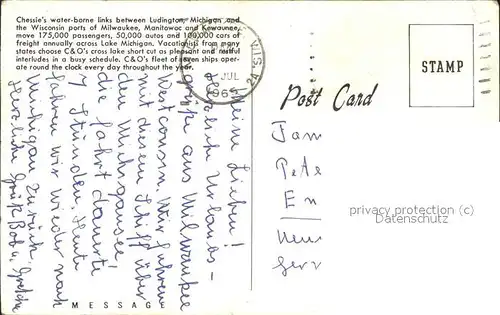 Chessie's water-borne links between Ludington, Michigan and
the Wisconsin ports of Milwaukee, Manitowoc and Kewaunee,
move 175,000 passengers, 50,000 autos and 100,000 cars of
freight annually across Lake Michigan. Vacationists from many
states choose C&O's cross lake short cut as pleasant and restful
interludes in a busy schedule. C&O's fleet of seven ships oper-
ate round the clock every day throughout the year.
JUL
1965
WIS
STAMP
Post Card
Meine Lieben!
Herzliche Urlaubs-
grüsse aus Milwaukee
Wisconsin. Wir fuhren
mit diesem Schiff über
den Michigansee
die Fahrt dauerte
7 Stunden. Heute
fahren wir wieder nach
Michigan zurück.
Herzliche Grüße Bob u. Gretchen
Fam
Pete
En
Neus
Ger
privacy protection (c)
Ansichtskarten
MESSAGE